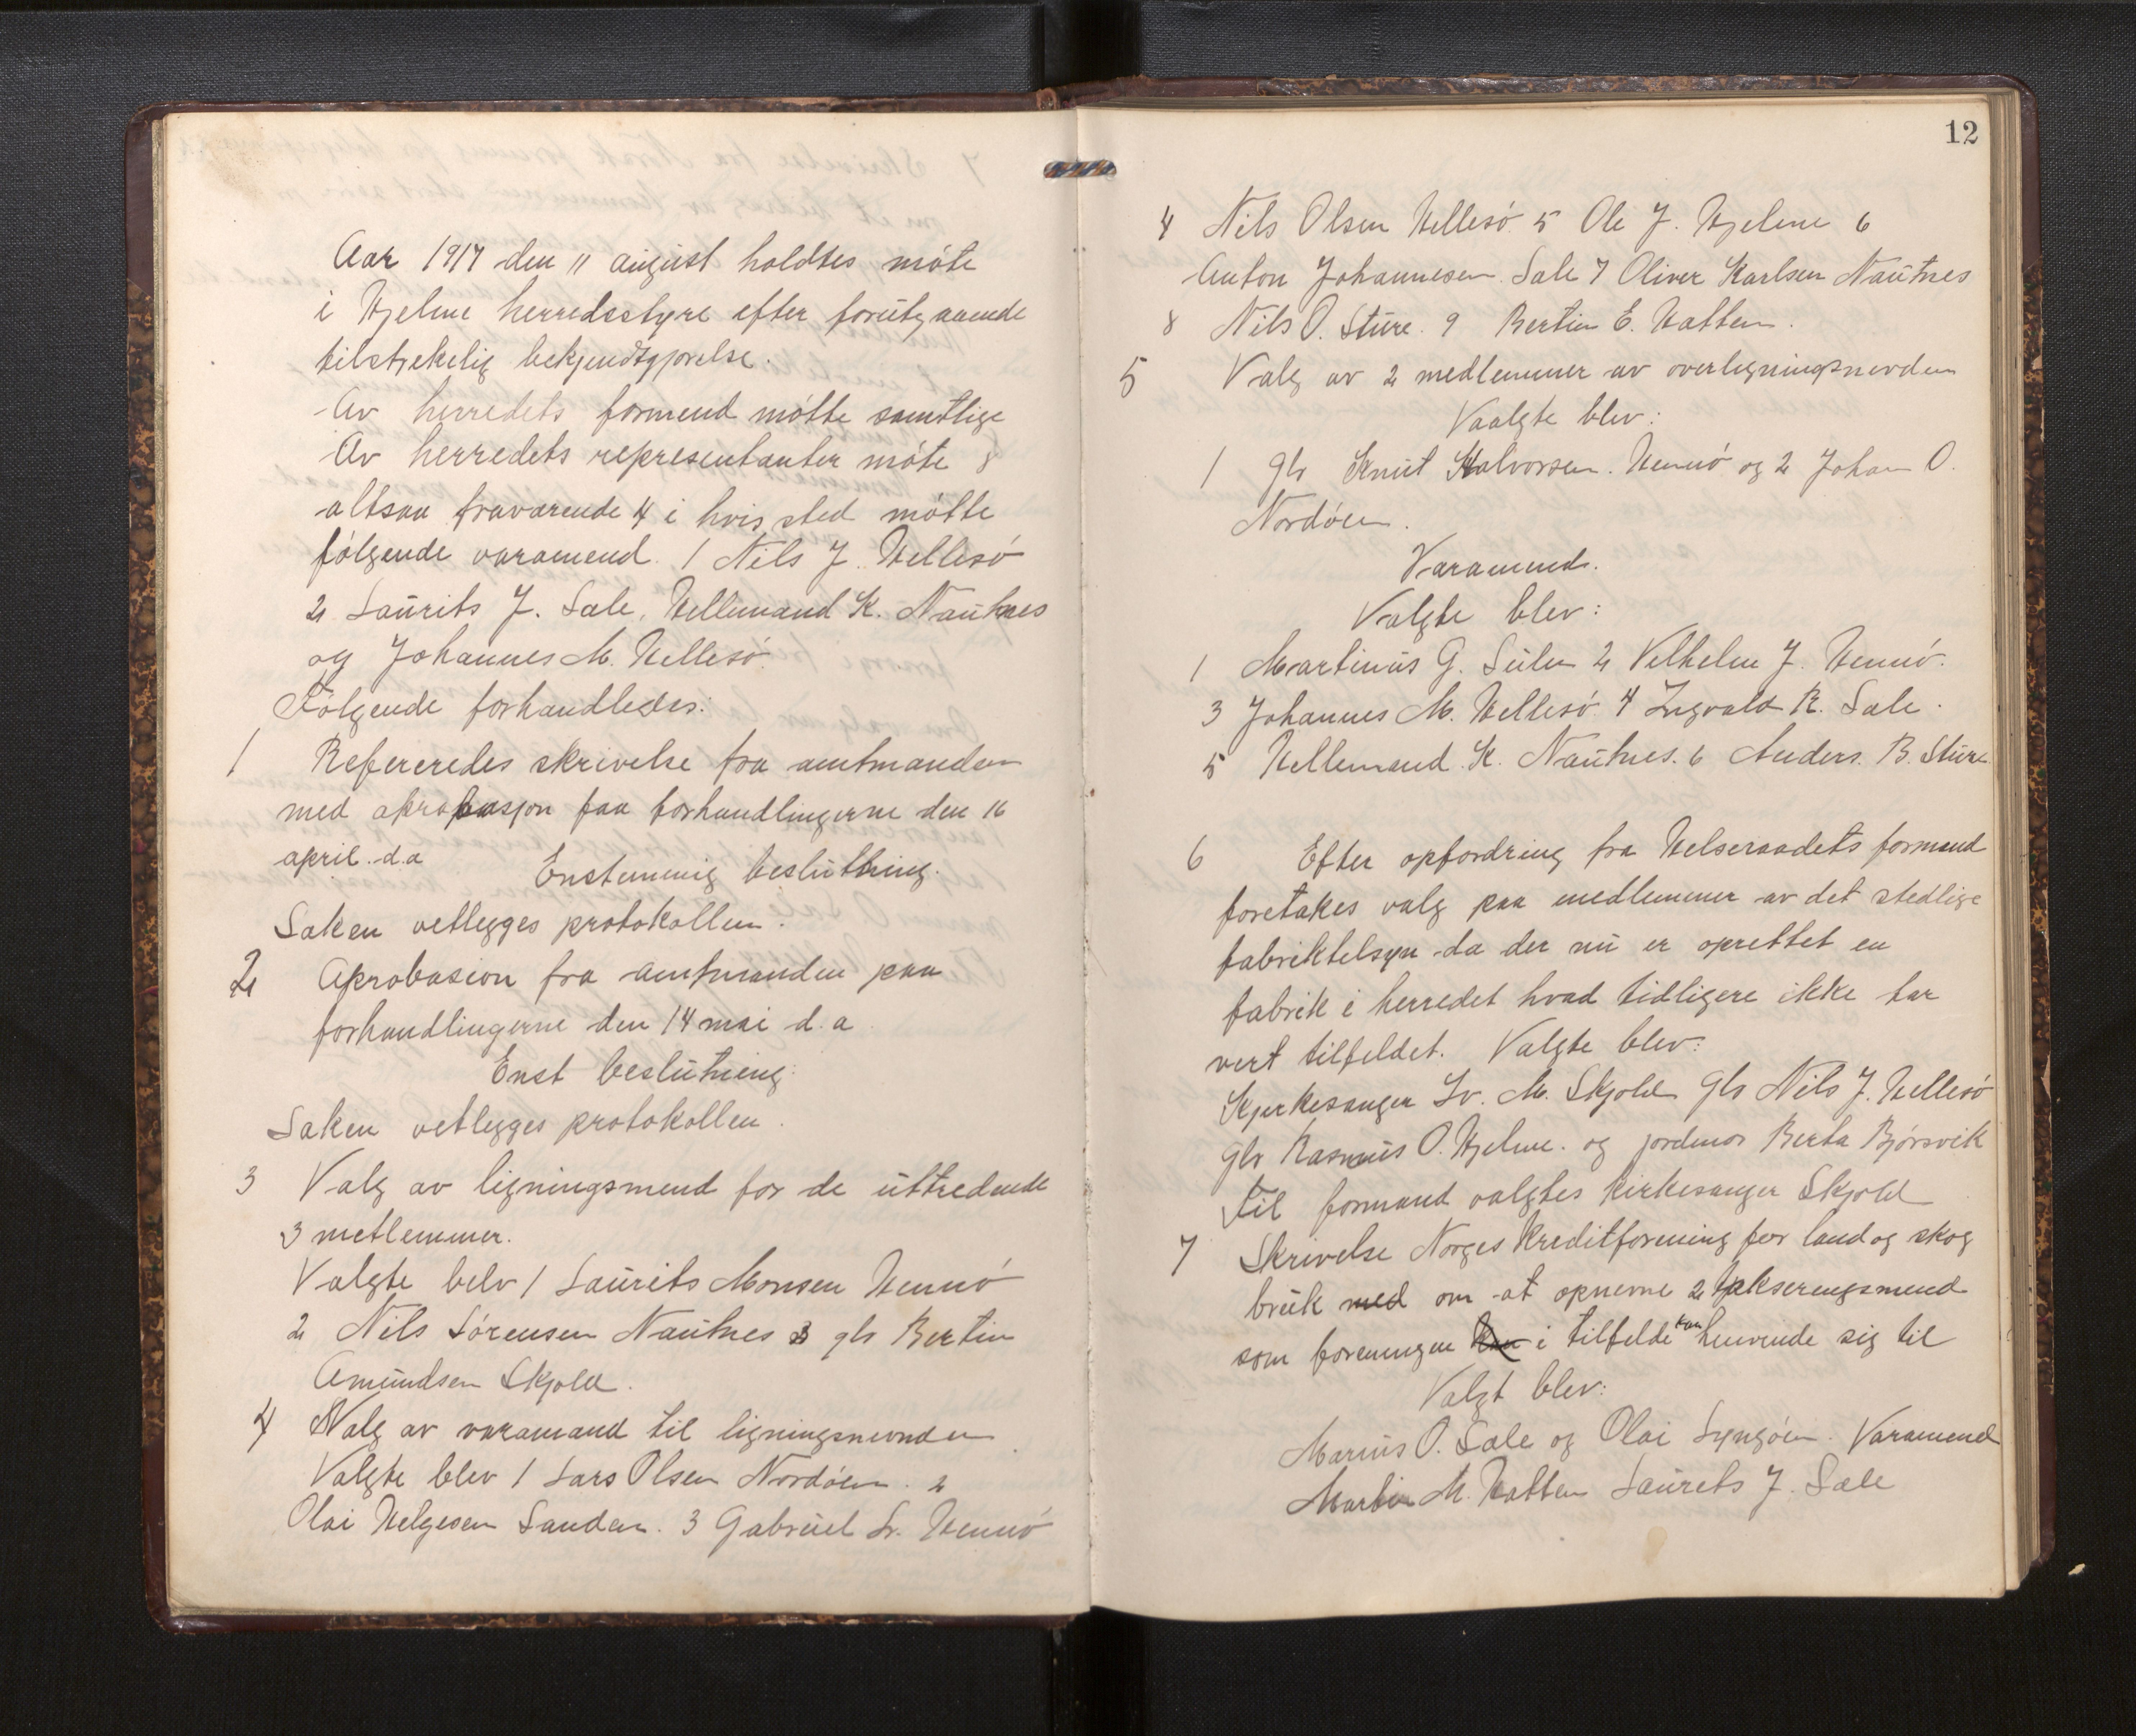 Aar 1917 den 11 august holdtes møte
i Hjelme herredsstyre efter forutgaaende
tilstrekelig bekjendtgjørelse.
Av herredets formend møtte samtlige
Av herredets representanter møte 8
altsaa fraværende 4 i hvis sted møtte
følgende varamend. 1 Nils J. Hellesø
2 Laurits J. Sæle, Hellemand K. Nautnes
og Johannes M. Hellesø.
Følgende forhandledes:
1 Refereredes skrivelse fra amtmanden
med aprobasjon paa forhandlingerne den 16
april d.a
Enstemmig beslutning.
Saken vetlegges protokollen.
2 Aprobasion fra amtmanden paa
forhandlingerne den 14 mai d.a
Enst beslutning:
Saken vetlegges protokollen.
3 Valg av ligningsmend for de uttredende
3 metlemmer.
Valgte belv 1 Laurits Monsen Hernø
2 Nils Sørensen Nautnes 3 gbr Bertin
Amundsen Skjold.
4 Valg av varamand til ligningsnevnden
Valgte blev 1 Lars Olsen Nordøen. 2
Olai Helgesen Sanden. 3 Gabriel Sr. Hernø
12
4 Nils Olsen Hellesø. 5 Ole J. Hjelme 6
Anton Johannesen. Sæle 7 Oliver Karlsen Nautnes
8 Nils O. Sture. 9 Bertin E. Hatten.
5 Valg av 2 medlemmer av overligningsnevden
Vaalgte blev:
1 gbr Knut Halvorsen. Hernø og 2 Johan O.
Nordøen.
Varamend.
Valgte blev:
1 Martinus G. Sulen 2 Vilhelm J. Hernø.
3 Johannes M. Hellesø. 4 Ingvald R. Sæle.
5 Hellemand. K. Nautnes. 6 Anders. B. Sture
6 Efter opfordring fra Helseraadets formand
foretakes valg paa medlemmer av det stedlige
fabriktelsyn da der nu er oprettet en
fabrik i herredet hvad tidligere ikke har
vert tilfeldet. Valgte blev:
Kjerkesanger Sv. M. Skjold gbr Nils J. Hellesø
gbr Rasmus O. Hjelme. og jordmor Berta Bjørsvik
Til formand valgtes kirkesanger Skjold
7 Skrivelse Norges kreditforening for land og skog
bruk med om at opnevne 2 takseringsmend
som foreningen i tilfelde kan henvende sig til
Valgt blev:
Marius O. Sæle og Olai Lyngøen. Varamend
Martin M. Hatten Laurets J. Sæle